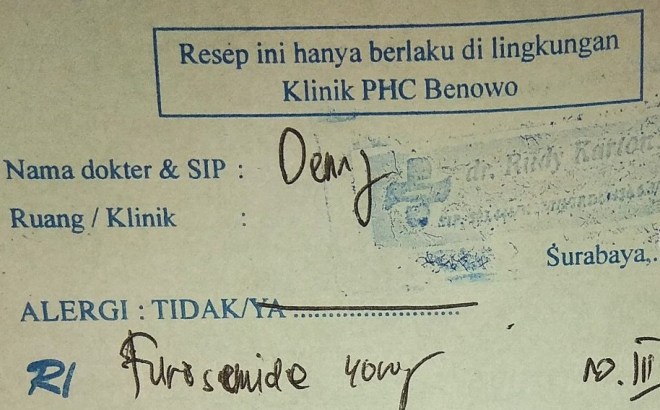 Resep ini hanya berlaku di lingkungan
Klinik PHC Benowo
Nama dokter & SIP : Denny
dr. Rudy
Ruang / Klinik :
Surabaya,.
ALERGI : TIDAK/YA ............................
R/ Furosemide 40mg no. III